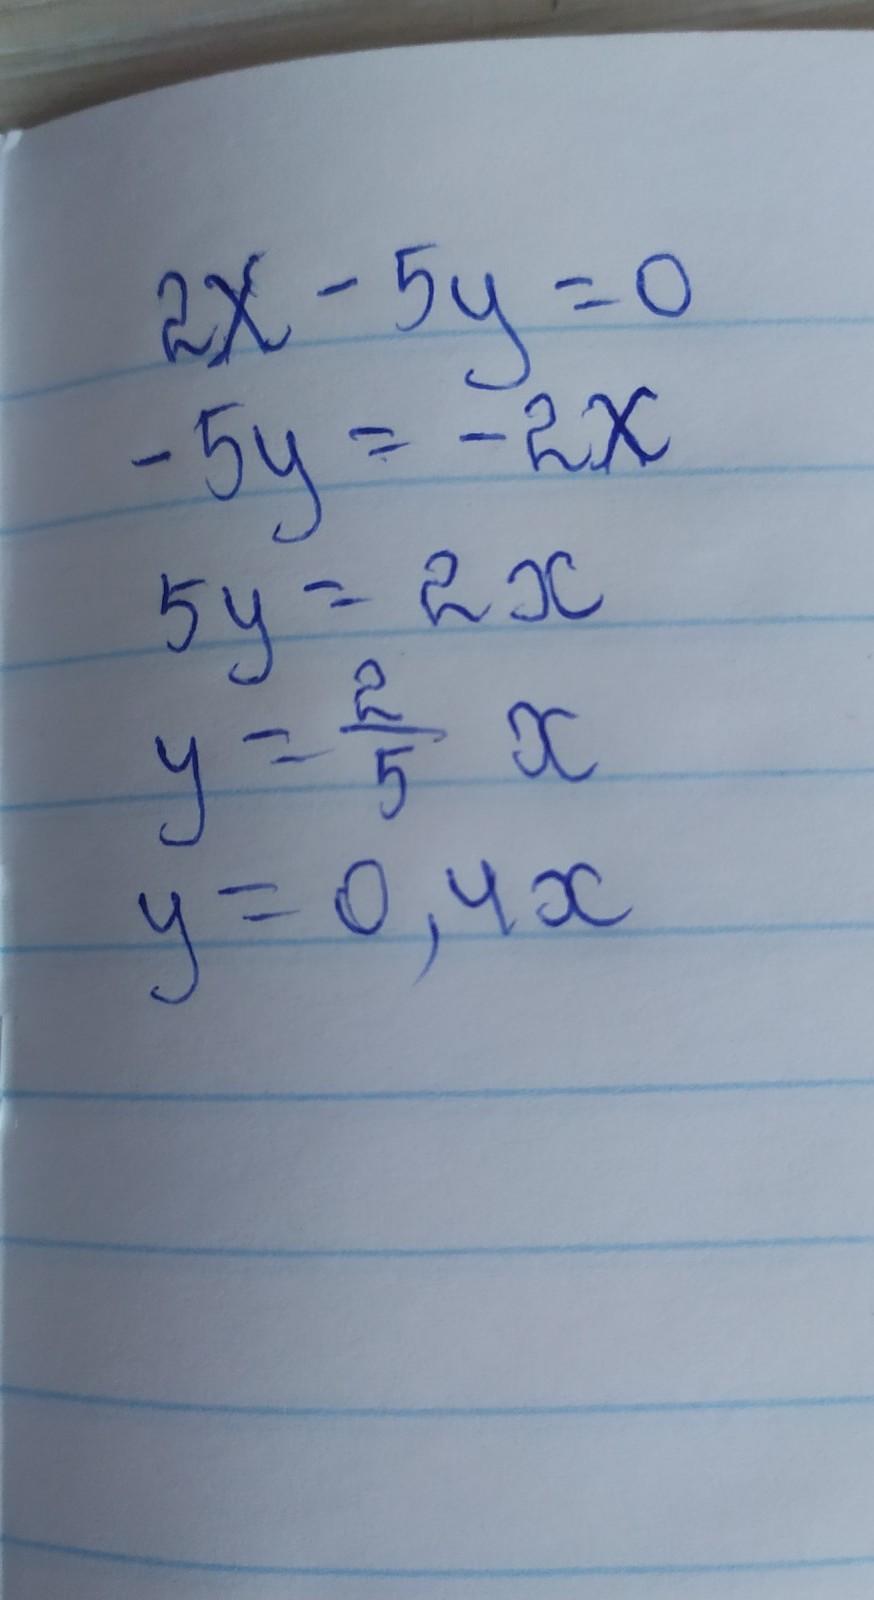 2x - 5y = 0
-5y = -2x
5y = 2x
y = 2/5 x
y = 0,4x